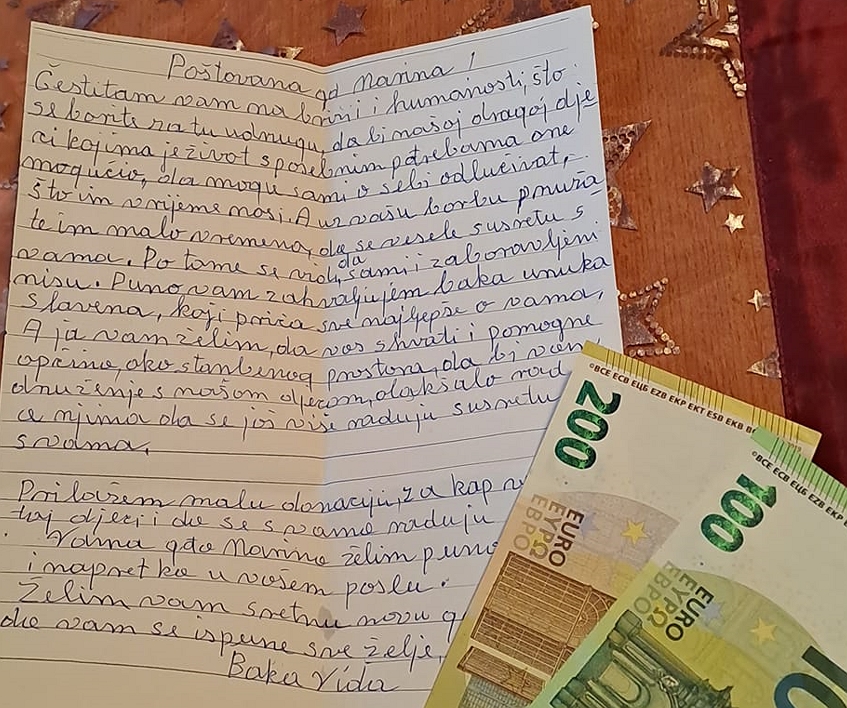 Poštovana gđ Marina!
Čestitam vam na brizi i humanosti, što
se borite za tu udrugu, da bi našoj dragoj dje
ci kojima je život s posebnim potrebama one
mogućio, da mogu sami o sebi odlučivat,
što im vrijeme nosi. A uz vašu borbu pruža
te im malo vremena, da se vesele susretu s
vama. Po tome se vidi, da sami i zaboravljeni
nisu. Puno vam zahvaljujem baka unuka
Slavena, koji priča sve najljepše o vama,
A ja vam želim, da vas shvati i pomogne
općina, oko stanbenog prostora, da bi vam
druženje s našom djecom, olakšalo rad
a njima da se još više raduju susretu
s vama,
Prilažem malu donaciju, za kap
toj djeci i da se s vama raduju
Vama gđo Marina želim puno
i napretka u vašem poslu.
Želim vam sretnu novu g
da vam se ispune sve želje,
Baka Vida
200
©BCE ECB ЕЦБ EZB EKP EKT ESB EKB
EURO
ΕΥΡΩ
ЕВРО
100
©BCE ECB ЕЦБ EZB EKP EKT
EURO
ΕΥΡΩ
ЕВРО
10